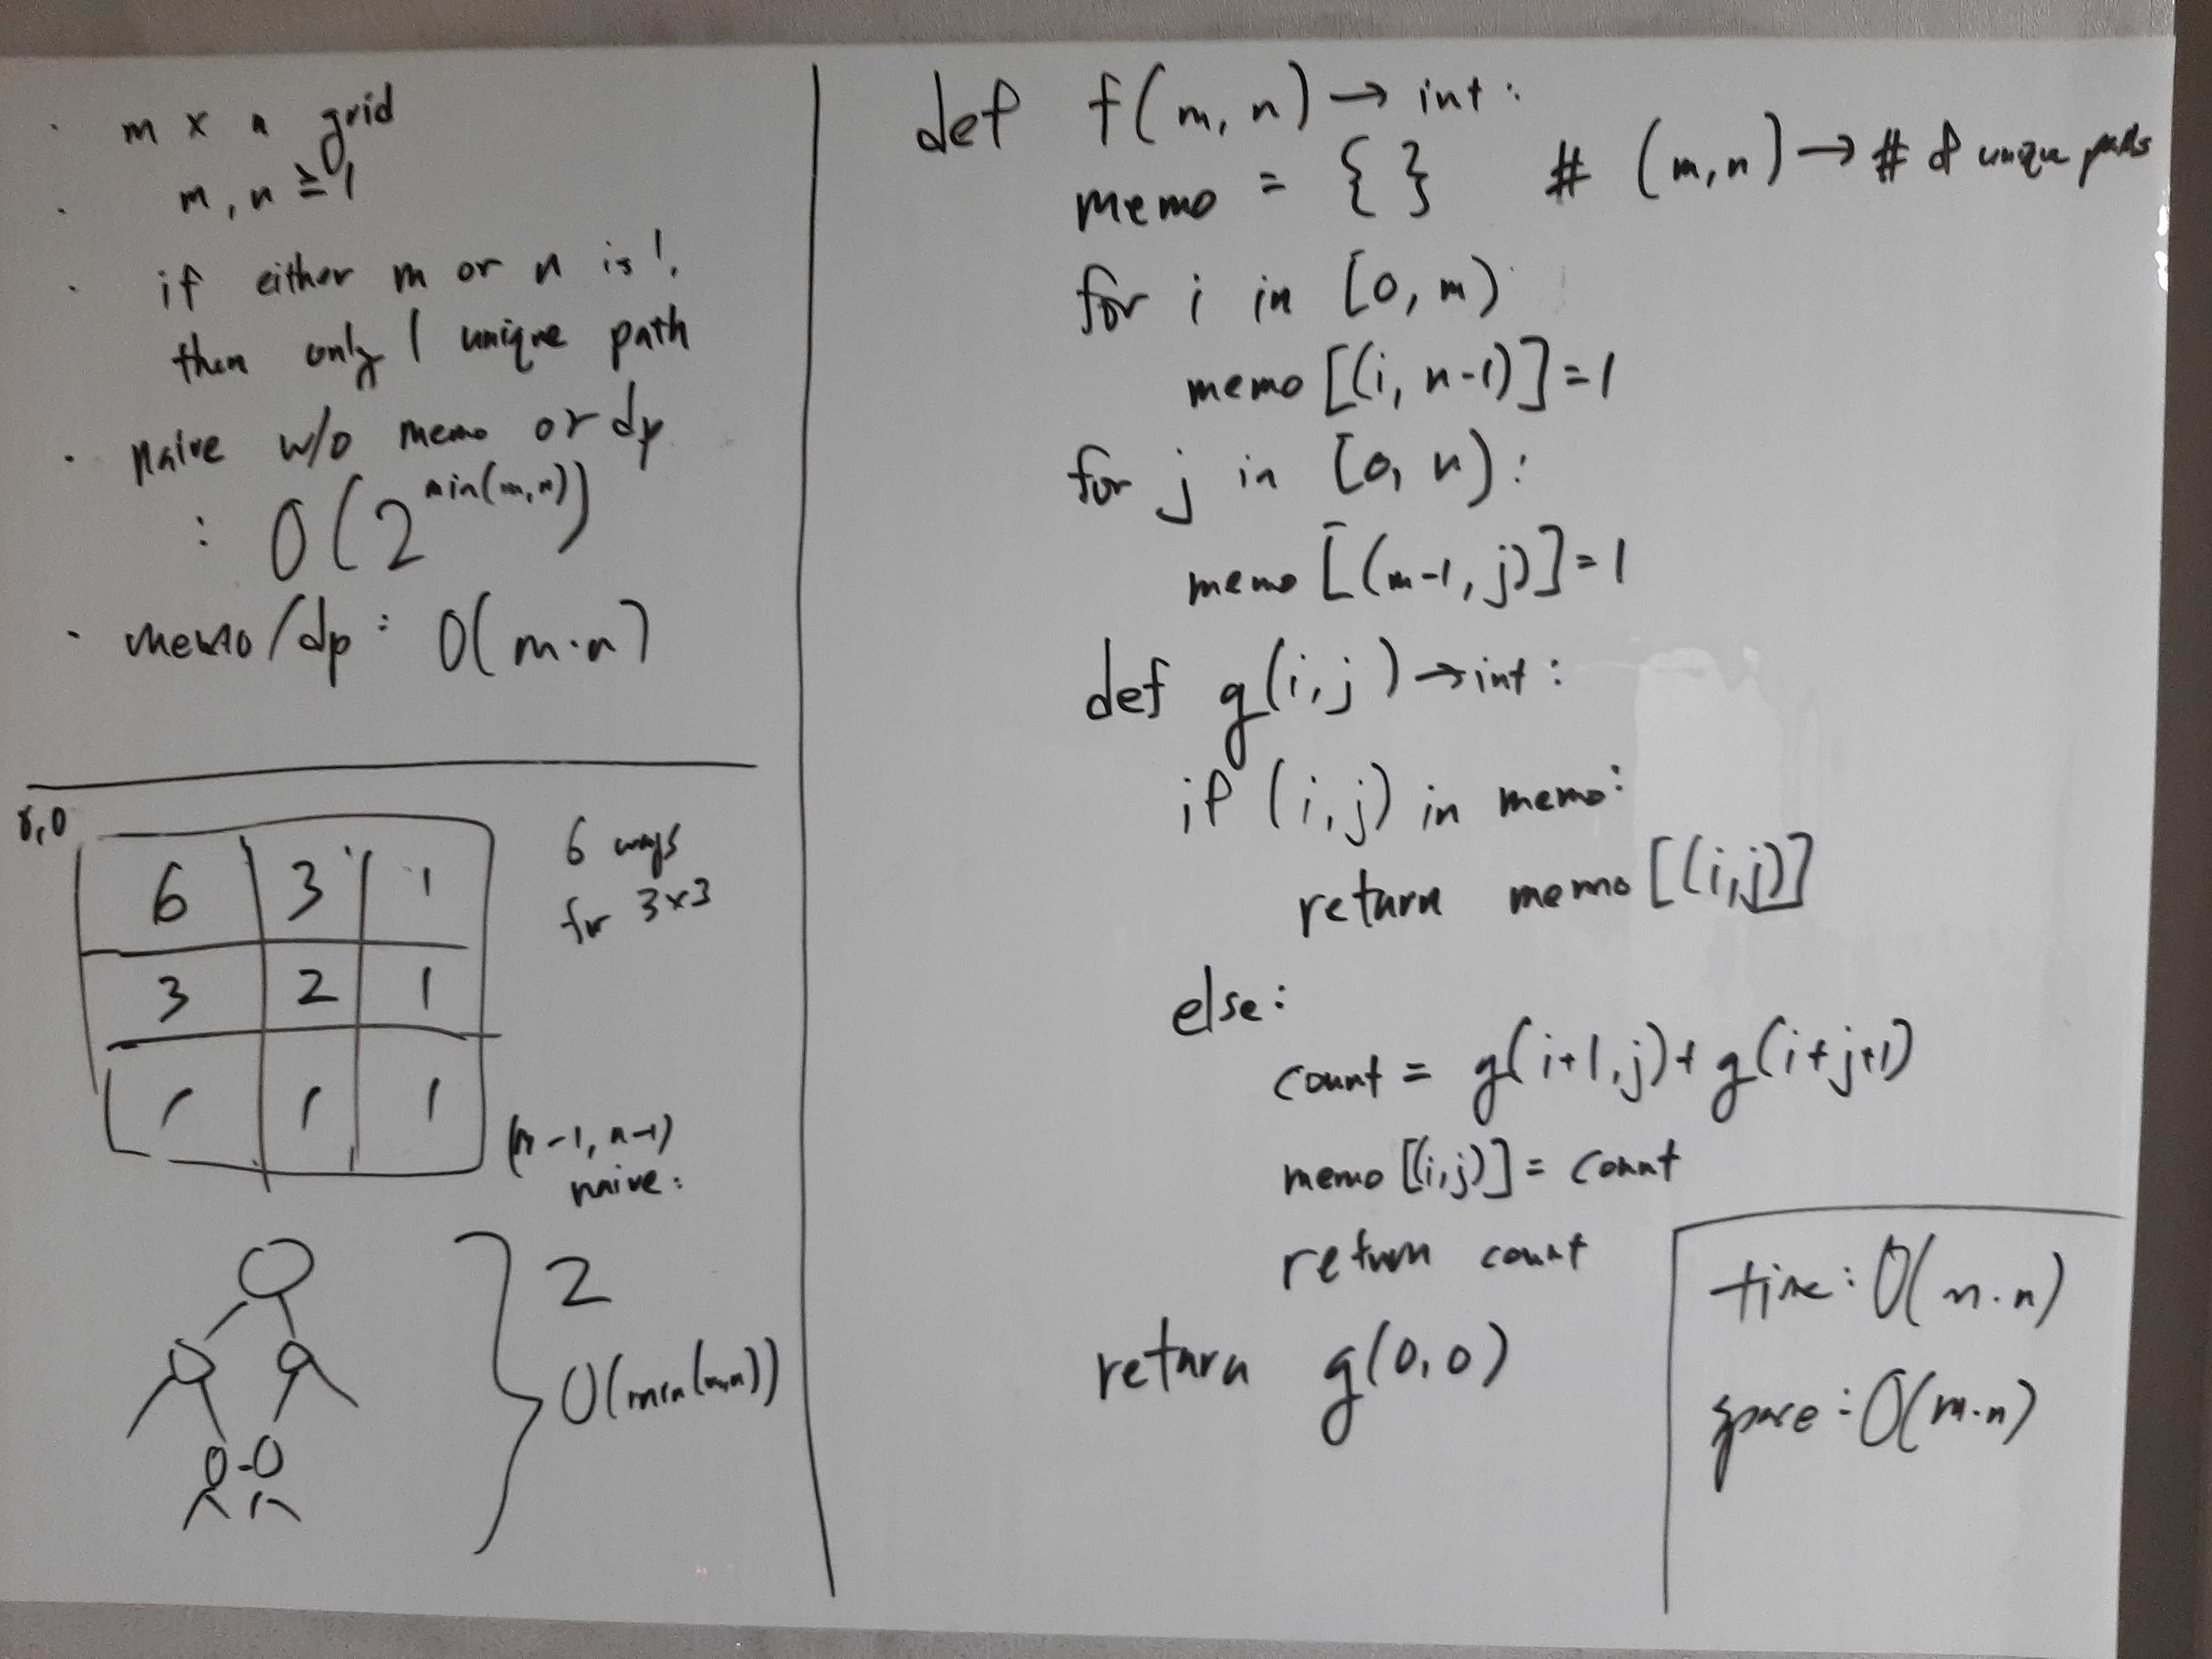 · m x n grid
· m, n ≥ 1
· if either m or n is 1,
then only 1 unique path
· naive w/o memo or dp
: O(2^min(m,n))
· memo/dp : O(m·n)
0,0
6 3 1
3 2 1
1 1 1
6 ways
for 3x3
(m-1, n-1)
naive:
2
O(min(m,n))
def f(m, n) → int:
memo = { } # (m,n) → # of unique paths
for i in [0, m)
memo[(i, n-1)]=1
for j in [0, n):
memo[(m-1, j)]=1
def g(i,j) → int:
if (i,j) in memo:
return memo[(i,j)]
else:
count = g(i+1,j)+g(i+j+1)
memo[(i,j)] = count
return count
return g(0,0)
time: O(m·n)
space: O(m·n)